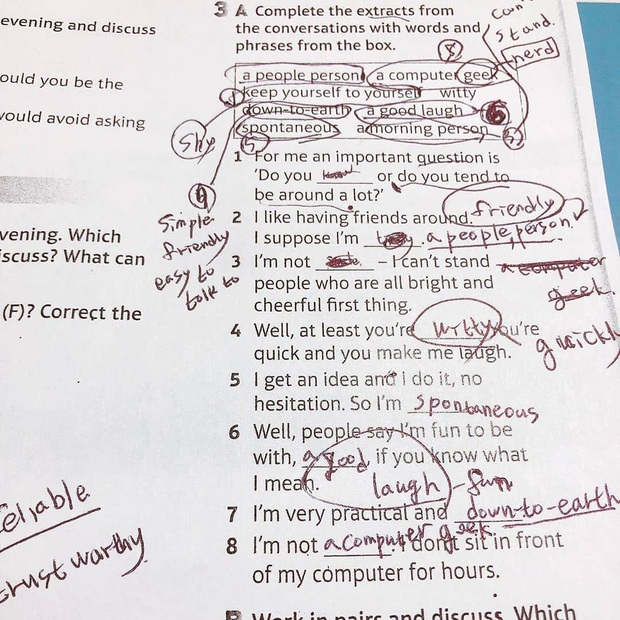 evening and discuss
ould you be the
would avoid asking
vening. Which
iscuss? What can
(F)? Correct the
eliable
trust worthy
3 A Complete the extracts from
the conversations with words and
phrases from the box.
can
stand.
nerd
a people person a computer geek
keep yourself to yourself witty
down-to-earth a good laugh
spontaneous a morning person
shy
simple
friendly
easy to
talk to
1 For me an important question is
'Do you or do you tend to
be around a lot?'
2 I like having friends around. friendly
I suppose I'm a people person.
3 I'm not – I can't stand a computer
people who are all bright and geek
cheerful first thing.
4 Well, at least you're witty you're
quick and you make me laugh. quickly
5 I get an idea and I do it, no
hesitation. So I'm spontaneous
6 Well, people say I'm fun to be
with, a good, if you know what
I mean. laugh - fun
7 I'm very practical and down-to-earth
8 I'm not a computer geek I don't sit in front
of my computer for hours.
B Work in pairs and discuss. Which